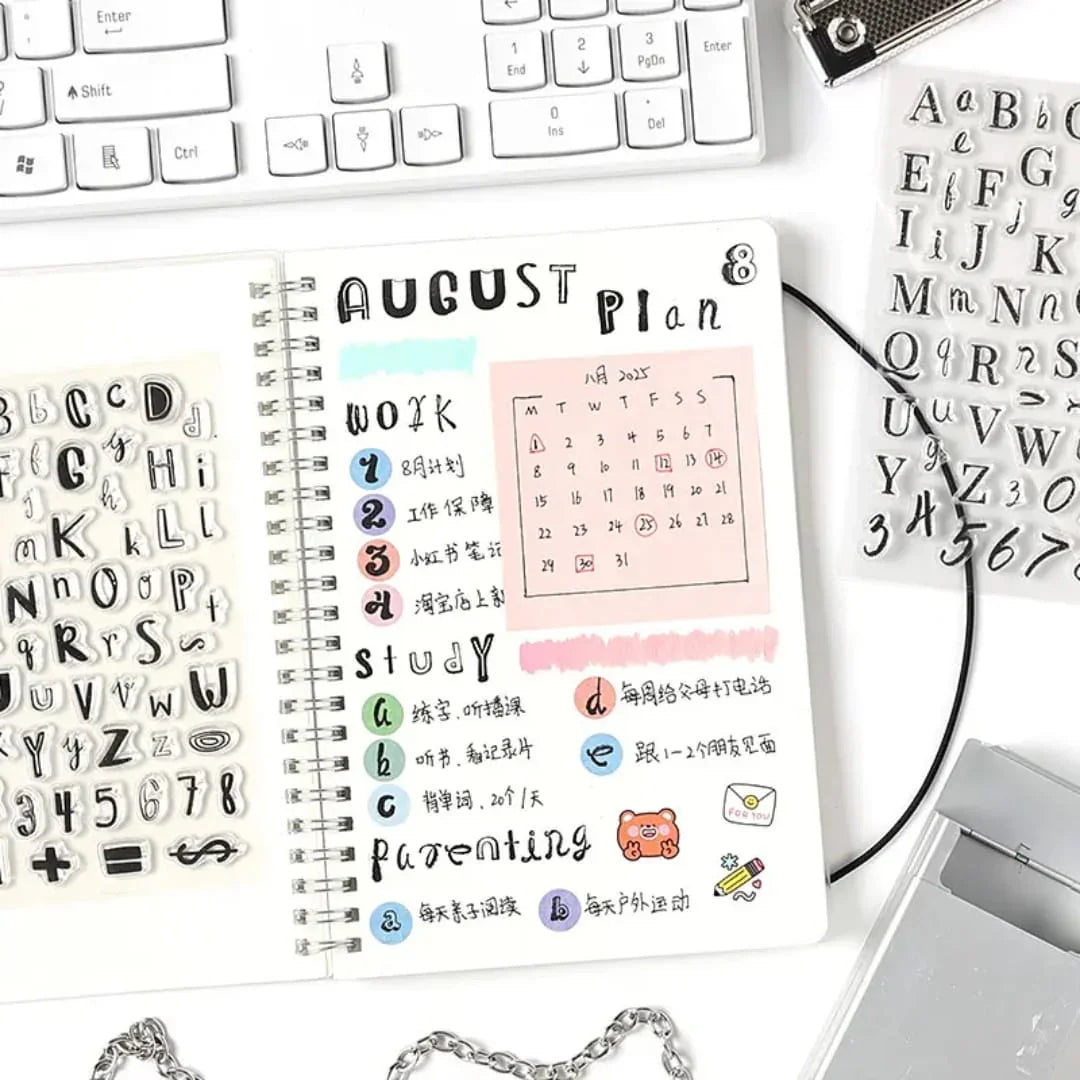 Enter
Shift
Ctrl
1 End
2
3 PgDn
Enter
0 Ins
. Del
AUGUST Plan 8
work
1 8月计划
2 工作保障
3 小红书笔记
4 淘宝店上新
八月 2025
M T W T F S S
1 2 3 4 5 6 7
8 9 10 11 12 13 14
15 16 17 18 19 20 21
22 23 24 25 26 27 28
29 30 31
study
a 练字、听播课
b 听书、看记录片
c 背单词、20个/天
d 每周给父母打电话
e 跟1-2个朋友见面
FOR YOU
parenting
a 每天亲子阅读
b 每天户外运动
B b C c D d
F f G g H i
j h
m K k L l
N n O o P
q R r S
U u V v W w
Y y Z z
3 4 5 6 7 8
+ = $
A a B b C
e
E f F G g
I i J j K
M m N n
Q q R r S
U u V W
Y g Z 3 0
3 4 5 6 7 8